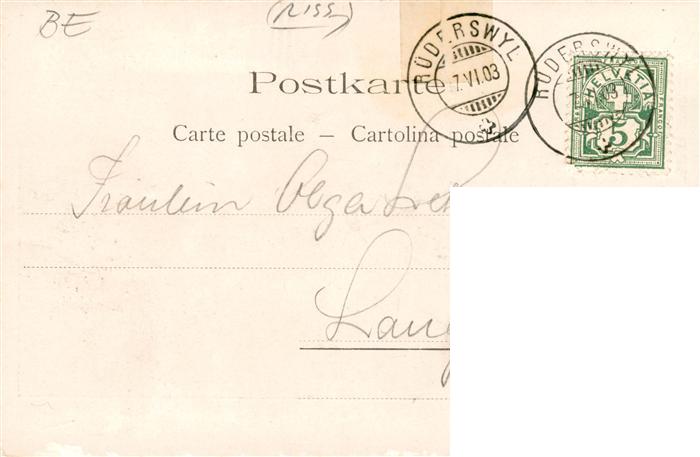 BE (RISS)
RÜDERSWYL
7.VI.03
RÜDERSWYL
HELVETIA
5
Postkarte
Carte postale – Cartolina postale
Fräulein Olga